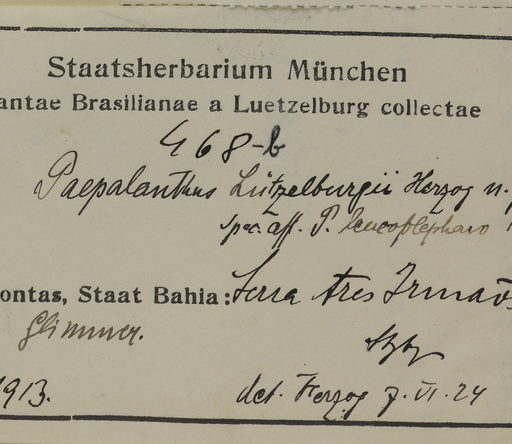 Staatsherbarium München
antae Brasilianae a Luetzelburg collectae
468-b
Paepalanthus Lützelburgii Herzog n.
spec. aff. P. leucoblepharo
ontas, Staat Bahia: Serra tres Irmãos
Glimmer.
1913.
det. Herzog 7.VI.24